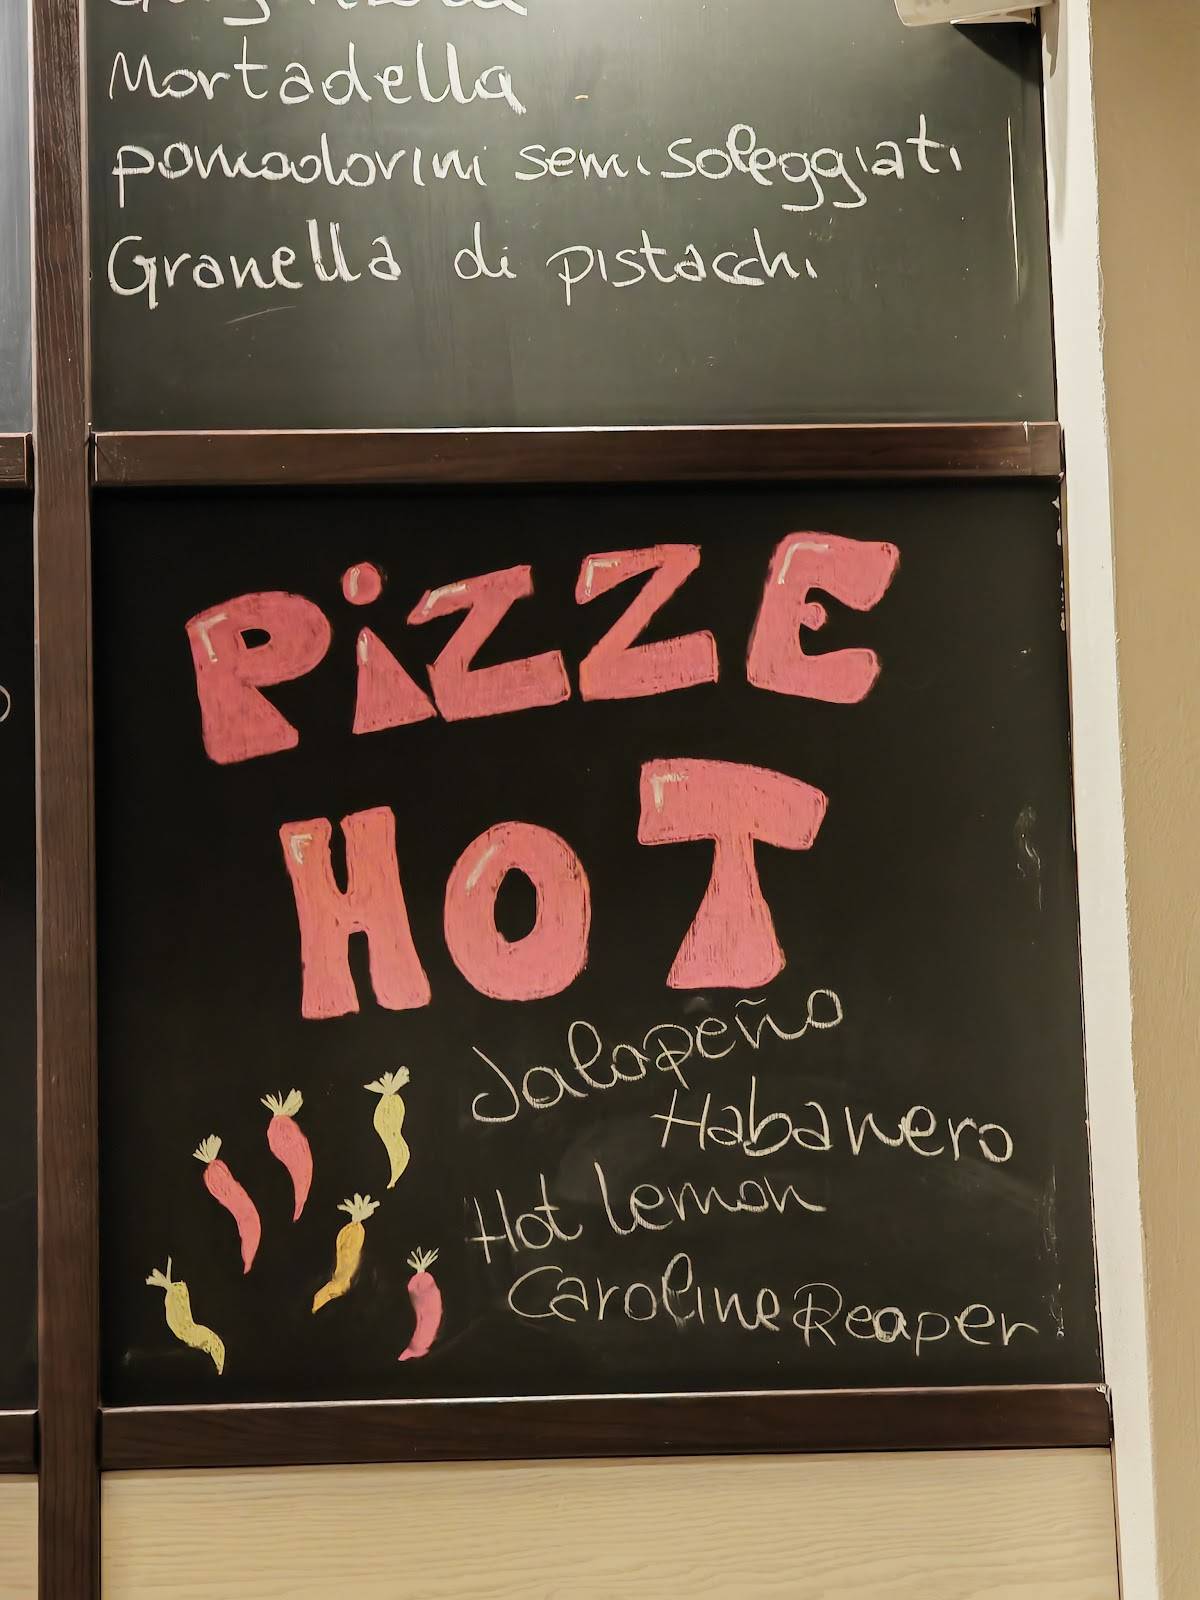 Mortadella
pomodorini semisoleggiati
Granella di pistacchi
PiZZE
HOT
Jalapeño
Habanero
Hot lemon
Caroline Reaper